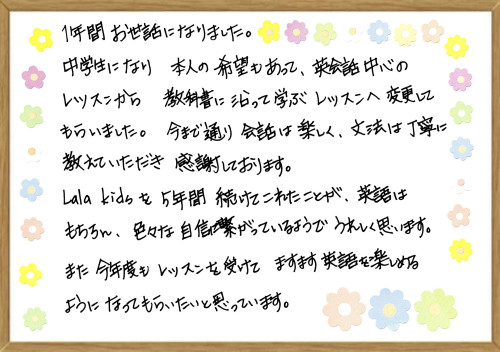 1年間 お世話になりました。
中学生になり 本人の希望もあって、英会話中心の
レッスンから 教科書に沿って学ぶレッスンへ変更して
もらいました。今まで通り会話は楽しく、文法は丁寧に
教えていただき 感謝しております。
Lala kidsを5年間 続けてこれたことが、英語は
もちろん、色々な自信に繋がっているようでうれしく思います。
また今年度もレッスンを受けて ますます英語を楽しめる
ようになってもらいたいと思っています。